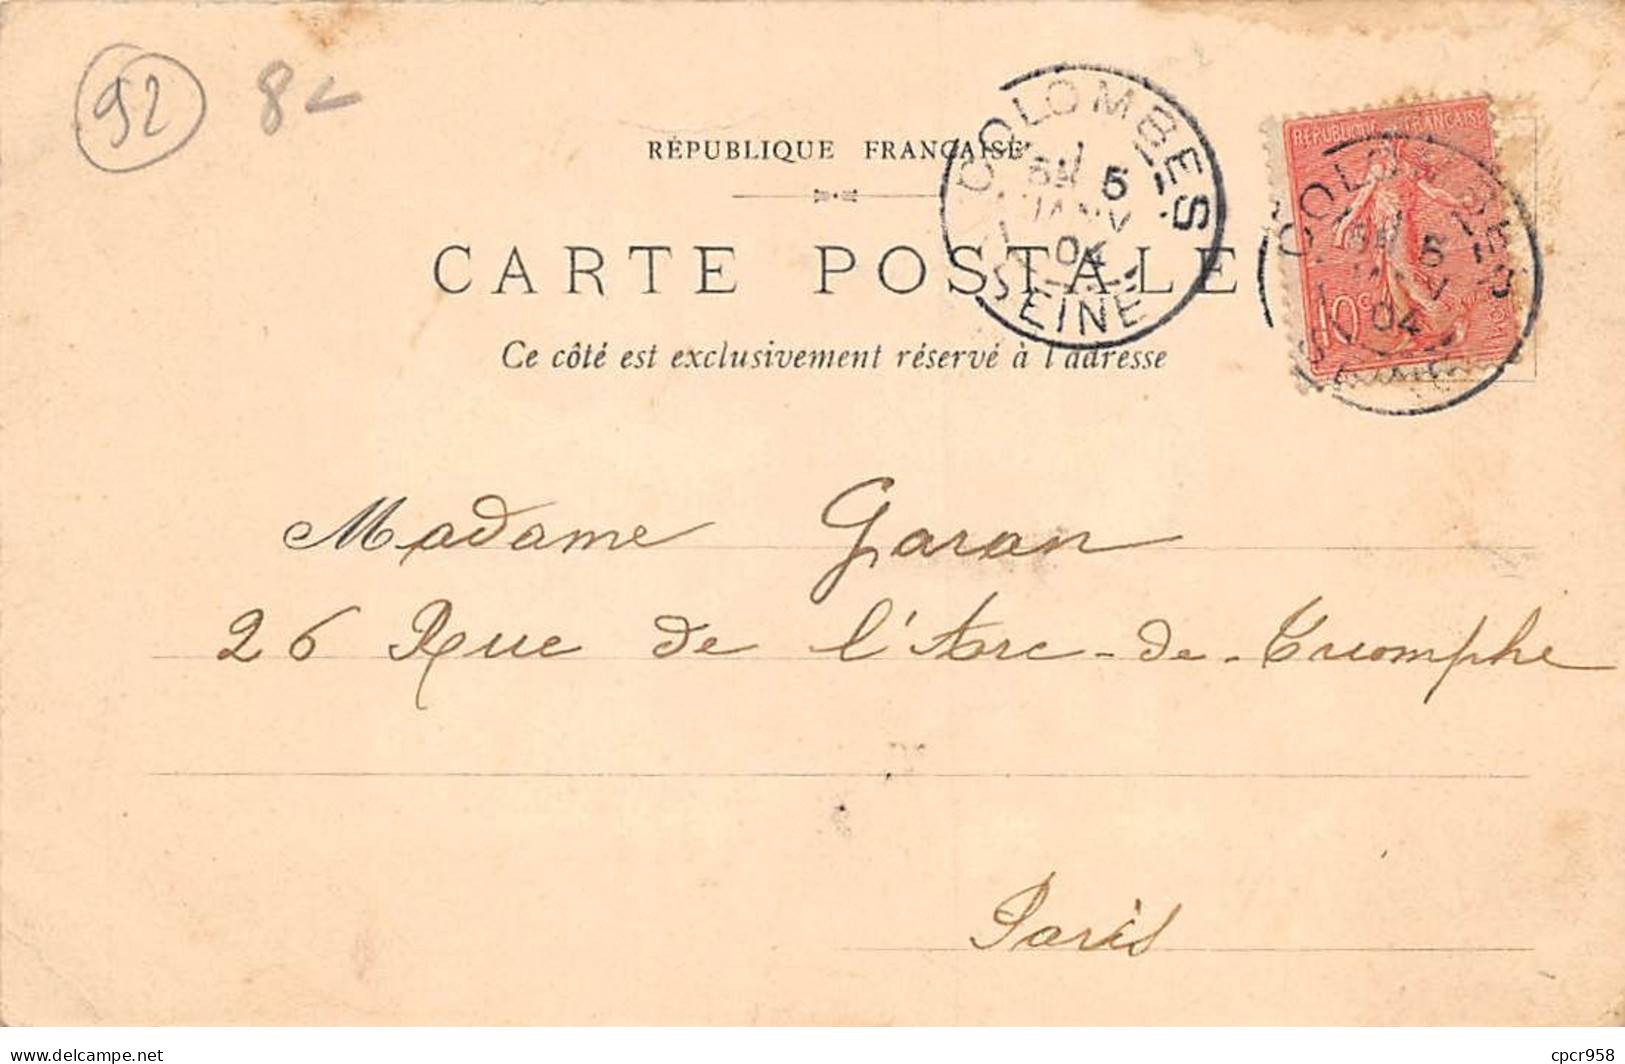 92 8
RÉPUBLIQUE FRANÇAISE
CARTE POSTALE
Ce côté est exclusivement réservé à l'adresse
COLOMBES
5
JANV
04
SEINE
RÉPUBLIQUE FRANÇAISE
10c
COLOMBES
5
04
Madame Garan
26 Rue de l'Arc-de-Triomphe
Paris
delcampe.net
cpcr958